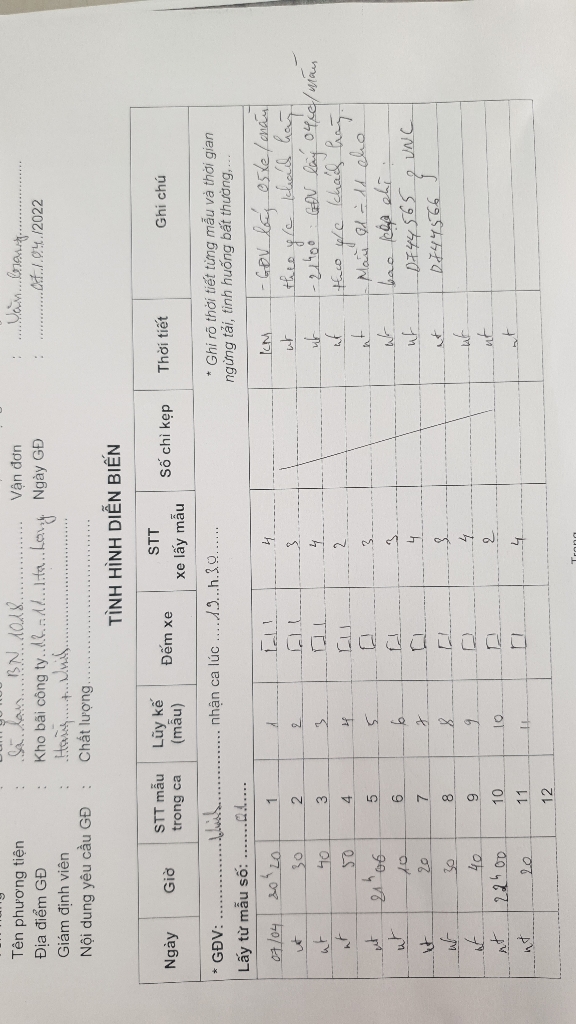 Tên phương tiện : Sà lan BN 1018 Vận đơn :
Địa điểm GĐ : Kho bãi công ty Hạ Long Ngày GĐ : 07/04/2022
Giám định viên :
Nội dung yêu cầu GĐ : Chất lượng
TÌNH HÌNH DIỄN BIẾN
Ngày Giờ STT mẫu trong ca Lũy kế (mẫu) Đếm xe STT xe lấy mẫu Số chì kẹp Thời tiết Ghi chú
* GĐV: nhận ca lúc 19 h 30 * Ghi rõ thời tiết từng mẫu và thời gian
Lấy từ mẫu số: 01 ngừng tải, tình huống bất thường,...
07/04 20h20 1 1 4 KM - GĐV lấy 05xe/mẫu
nt 30 2 2 3 nt theo y/c khách hàng
nt 40 3 3 4 nt - 21h00: GĐV lấy 04xe/mẫu
nt 50 4 4 2 nt theo y/c khách hàng.
nt 21h06 5 5 3 nt - Mẫu 01 ÷ 11 cho
nt 10 6 6 3 nt bao kẹp chì:
nt 20 7 7 4 nt 0744565 VNC
nt 30 8 8 3 nt 0744566
nt 40 9 9 4 nt
nt 22h00 10 10 2 nt
nt 20 11 11 4 nt
12